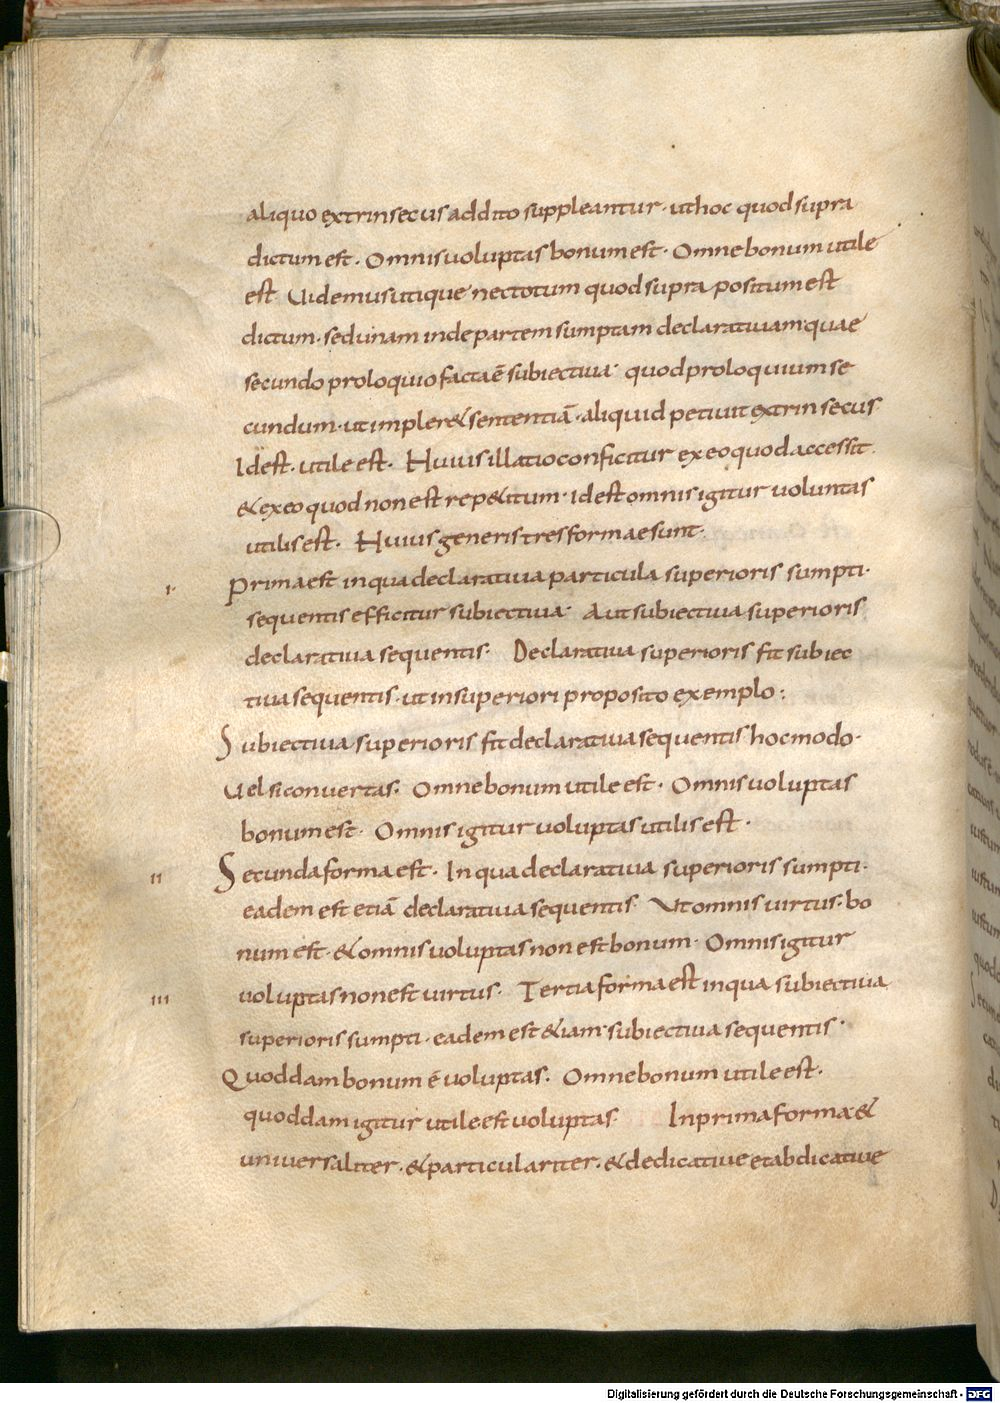 aliquo extrinsecus addito suppleantur· ut hoc quod supra
dictum est· Omnis uoluptas bonum est· Omne bonum utile
est Uidemus utique nec totum quod supra positum est
dictum· sed unam inde partem sumptam declaratiuam· quae
secundo proloquio facta ē subiectiua· quod proloquium se
cundum· ut impler& sententiā· aliquid petiuit extrinsecus·
Id est· utile est· Huius illatio conficitur ex eo quod accessit·
& ex eo quod non est rep&itum· id est omnis igitur voluntas
utilis est· Huius generis tres formae sunt·
I· Prima est in qua declaratiua particula superioris sumpti·
sequentis efficitur subiectiua· Aut subiectiua superioris
declaratiua sequentis· Declaratiua superioris fit subiec
tiua sequentis· ut in superiori proposito exemplo:
Subiectiua superioris fit declaratiua sequentis hoc modo·
Uel si conuertas· Omne bonum utile est· Omnis uoluptas
bonum est· Omnis igitur uoluptas utilis est·
II Secunda forma est· In qua declaratiua superioris sumpti·
eadem est etiā declaratiua sequentis· Ut omnis uirtus· bo
num est· & omnis uoluptas non est bonum· Omnis igitur
III uoluptas non est uirtus· Tertia forma est in qua subiectiua
superioris sumpti· eadem est &iam· subiectiua sequentis·
Quoddam bonum ē uoluptas· Omne bonum utile est·
quoddam igitur utile est uoluptas· In prima forma· &
uniuersaliter· & particulariter· & dedicatiue et abdicatiue
Digitalisierung gefördert durch die Deutsche Forschungsgemeinschaft - DFG